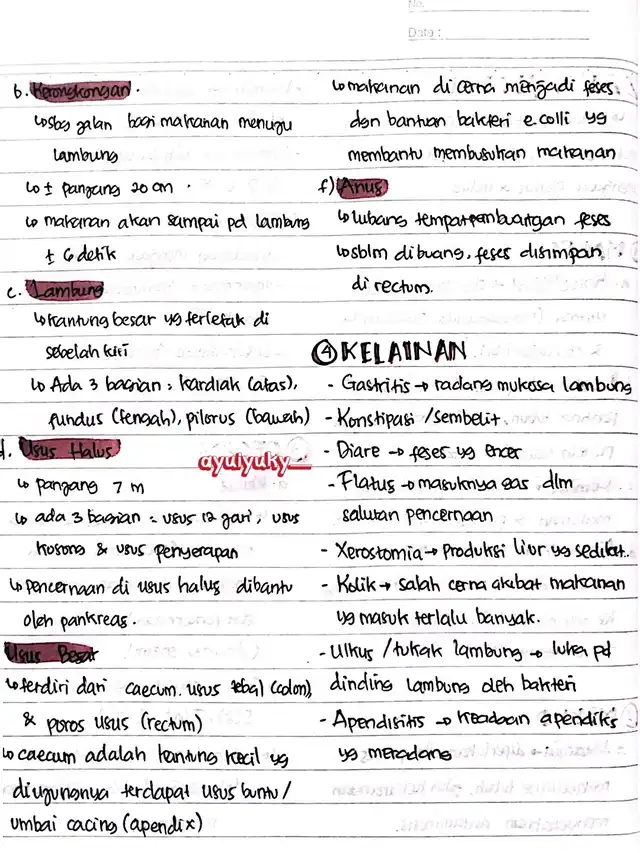 No.
Date :
b. Kerongkongan.
↳ sbg jalan bagi makanan menuju
lambung
↳ ± panjang 20 cm.
↳ makanan akan sampai pd lambung
± 6 detik
c. Lambung
↳ kantung besar yg terletak di
sebelah kiri
↳ Ada 3 bagian : kardiak (atas),
fundus (tengah), pilorus (bawah)
d. Usus Halus
↳ panjang 7 m
↳ ada 3 bagian : usus 12 jari, usus
kosong & usus penyerapan
↳ pencernaan di usus halus dibantu
oleh pankreas.
Usus Besar
↳ terdiri dari caecum, usus tebal (colon),
& poros usus (rectum)
↳ caecum adalah kantung kecil yg
diujungnya terdapat usus buntu /
umbai cacing (apendix)
↳ makanan di cerna menjadi feses
dgn bantuan bakteri e.colli yg
membantu membusukan makanan
f) Anus
↳ lubang tempat pembuangan feses
↳ sblm dibuang, feses disimpan
di rectum.
④ KELAINAN
- Gastritis → radang mukosa lambung
- Konstipasi / sembelit.
- Diare → feses yg encer
- Flatus → masuknya gas dlm
salutan pencernaan
- Xerostomia → Produksi liur yg sedikit.
- Kolik → salah cerna akibat makanan
yg masuk terlalu banyak.
- Ulkus / tukak lambung → luka pd
dinding lambung oleh bakteri
- Apendisitis → keadaan apendiks
yg meradang
ayulyuky_